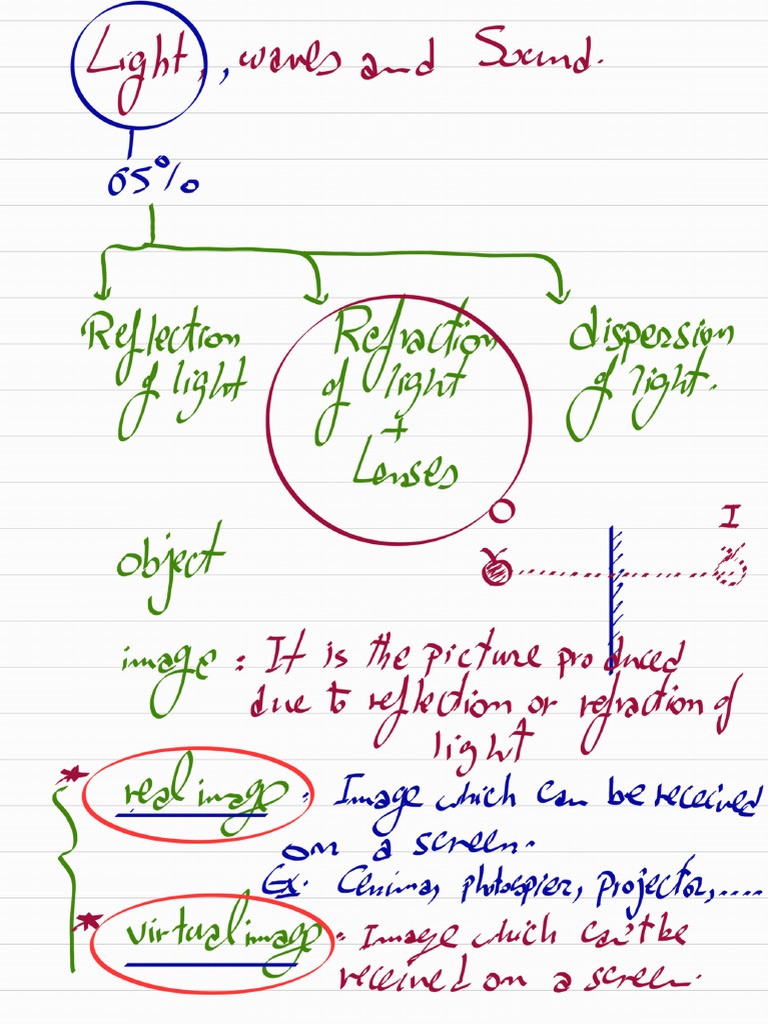 Light, , waves and Sound.
65%
Reflection of light
Refraction of light + Lenses
dispersion of light.
O
I
object
image : It is the picture produced
due to reflection or refraction of
light
* real image : Image which can be received
on a screen.
Ex: Cenima, photocopier, projector, ....
* virtual image : Image which can't be
received on a screen.